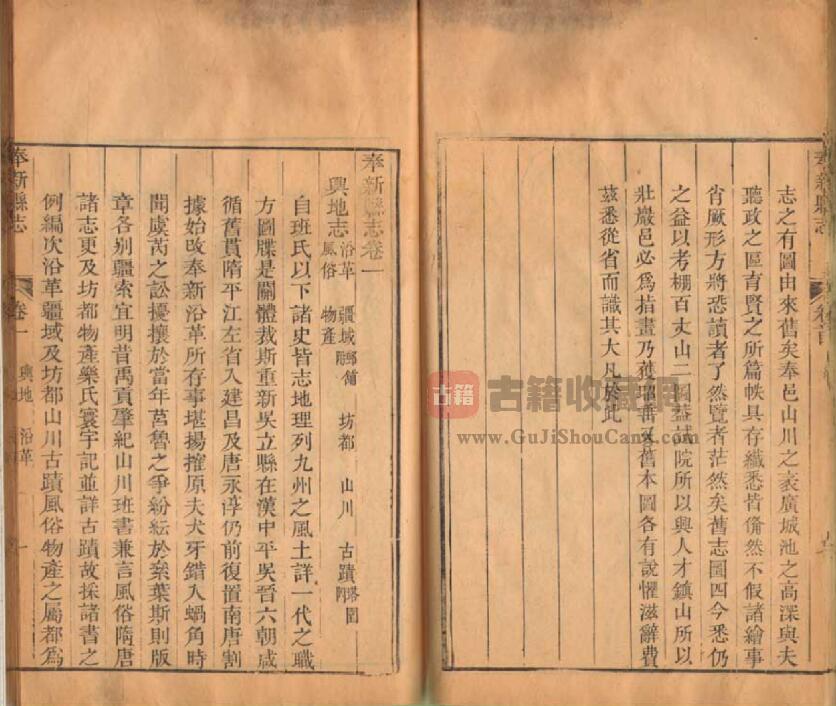 志之有圖由來舊矣奉邑山川之袤廣城池之高深與夫
聽政之區育賢之所篇帙具存纖悉皆備然不假諸繪事
㡿厥形方將恐讀者了然覽者茫然矣舊志圖四今悉仍
之益以考棚百丈山二圖葢試院所以興人才鎮山所以
壯巖邑必為指畫乃獲昭舊本圖各有說懼滋辭費
茲悉從省而識其大凡於此
奉新縣志
奉新縣志卷一
輿地志 沿革 疆域 坊都 山川 古蹟
風俗 物產
自班氏以下諸史皆志地理列九州之風土詳一代之職
方圖牒是關體裁斯重新吳立縣在漢中平吳晉六朝咸
循舊貫隋平江左省入建昌及唐永淳仍前復置南唐割
據始改奉新沿革所存事堪揚搉原夫犬牙錯入蝸角時
聞虞芮之訟擾攘於當年莒魯之爭紛紜於奕葉斯則版
章各別疆索宜明昔禹貢肇紀山川班書兼言風俗隋唐
諸志更及坊都物產樂氏寰宇記並詳古蹟故採諸書之
例編次沿革疆域及坊都山川古蹟風俗物產之屬都為
奉新縣志
卷一
輿地 沿革
一
古籍
古籍收藏网
www.GuJiShouCang.com